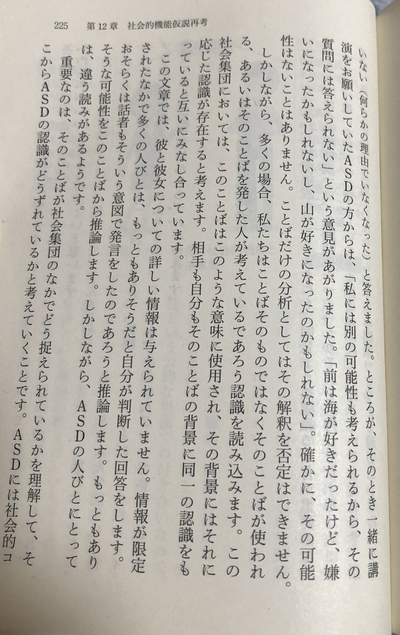 225　第12章　社会的機能仮説再考
いない（何らかの理由でいなくなった）と答えました。ところが、そのとき一緒に講
演をお願いしていたＡＳＤの方からは、「私には別の可能性も考えられるから、その
質問には答えられない」という意見があがりました。「前は海が好きだったけど、嫌
いになったかもしれないし、山が好きになったのかもしれない」。確かに、その可能
性はないことはありません。ことばだけの分析としてはその解釈を否定はできません。
しかしながら、多くの場合、私たちはことばそのものではなくそのことばが使われ
る、あるいはそのことばを発した人が考えているであろう認識を読み込みます。この
社会集団においては、このことばはこのような意味に使用され、その背景にはそれに
応じた認識が存在すると考えます。相手も自分もそのことばの背景に同一の認識をも
っていると互いにみなし合っています。
この文章では、彼と彼女についての詳しい情報は与えられていません。情報が限定
されたなかで多くの人びとは、もっともありそうだと自分が判断した回答をします。
おそらくは話者もそういう意図で発言をしたのであろうと推論します。もっともあり
そうな可能性をこのことばから推論します。しかしながら、ＡＳＤの人びとにとって
は、違う読みがあるようです。
重要なのは、そのことばが社会集団のなかでどう捉えられているかを理解して、そ
こからＡＳＤの認識がどうずれているかと考えていくことです。ＡＳＤには社会的コ